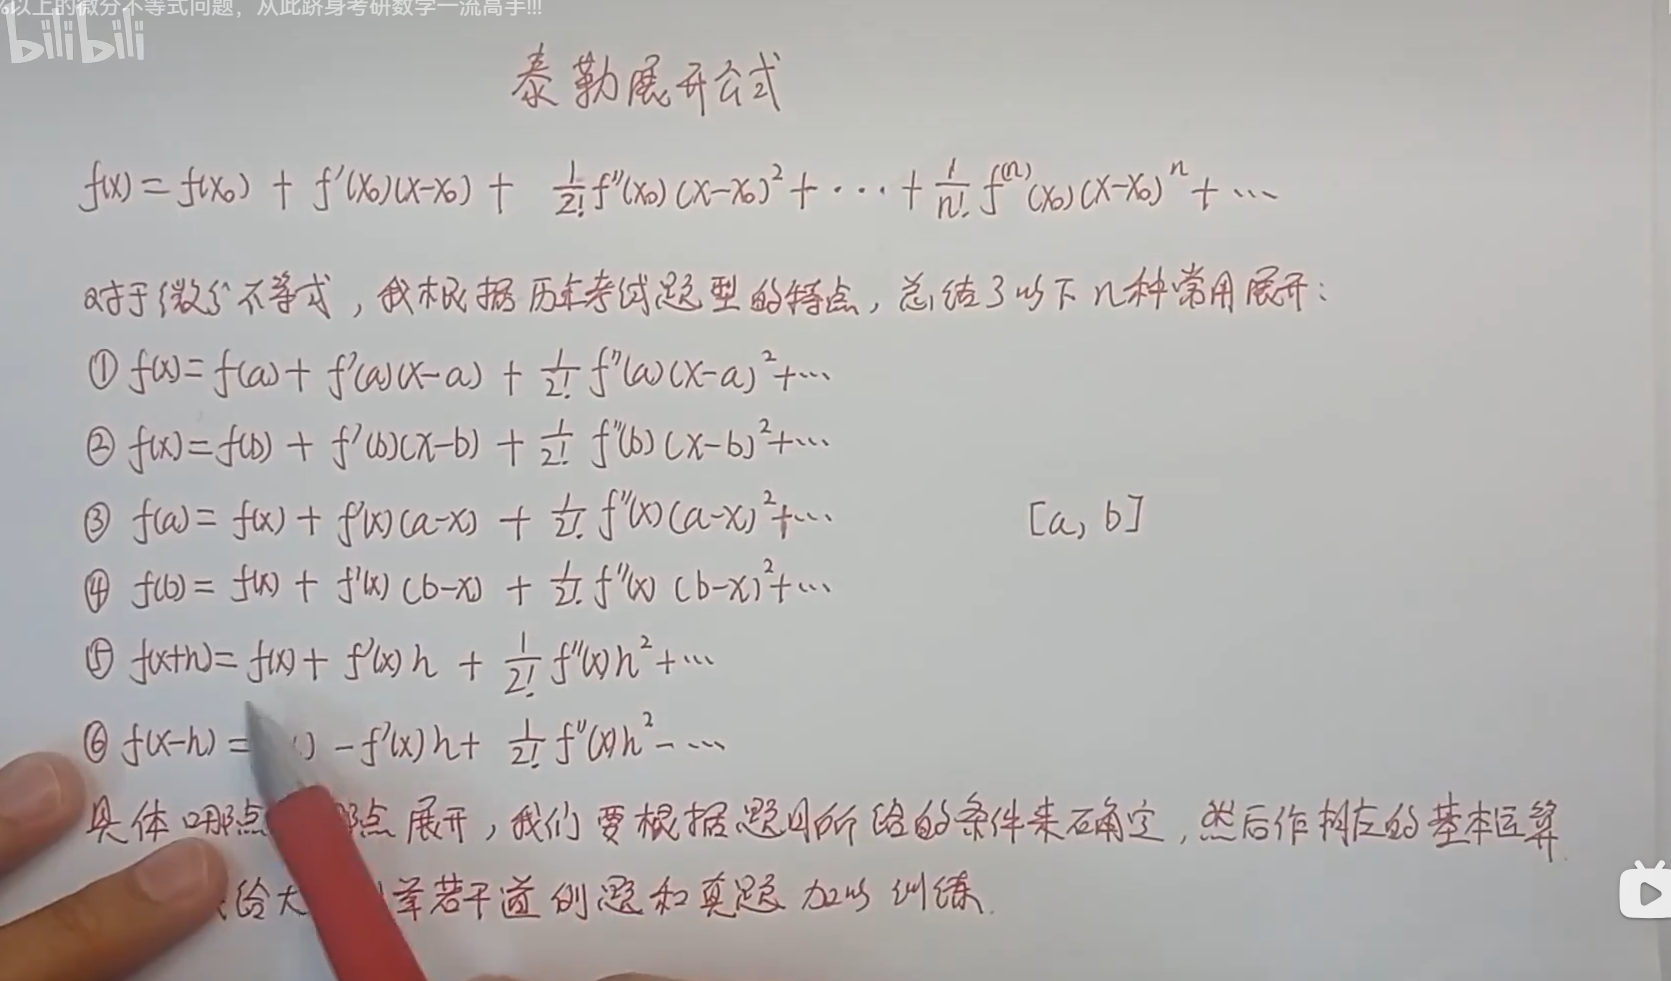 以上的微分不等式问题，从此跻身考研数学一流高手!!!
bilibili
泰勒展开公式
f(x)=f(x₀)+f'(x₀)(x-x₀)+\frac{1}{2!}f''(x₀)(x-x₀)²+···+\frac{1}{n!}f⁽ⁿ⁾(x₀)(x-x₀)ⁿ+···
对于微分不等式，我根据历年考试题型的特点，总结了以下n种常用展开：
① f(x)=f(a)+f'(a)(x-a)+\frac{1}{2!}f''(a)(x-a)²+···
② f(x)=f(b)+f'(b)(x-b)+\frac{1}{2!}f''(b)(x-b)²+···
③ f(a)=f(x)+f'(x)(a-x)+\frac{1}{2!}f''(x)(a-x)²+··· [a, b]
④ f(b)=f(x)+f'(x)(b-x)+\frac{1}{2!}f''(x)(b-x)²+···
⑤ f(x+h)=f(x)+f'(x)h+\frac{1}{2!}f''(x)h²+···
⑥ f(x-h)= ) -f'(x)h+\frac{1}{2!}f''(x)h²-···
具体哪点 那点展开，我们要根据题目所给的条件来确定，然后作相应的基本运算
给大 举若干道例题和真题加以训练.